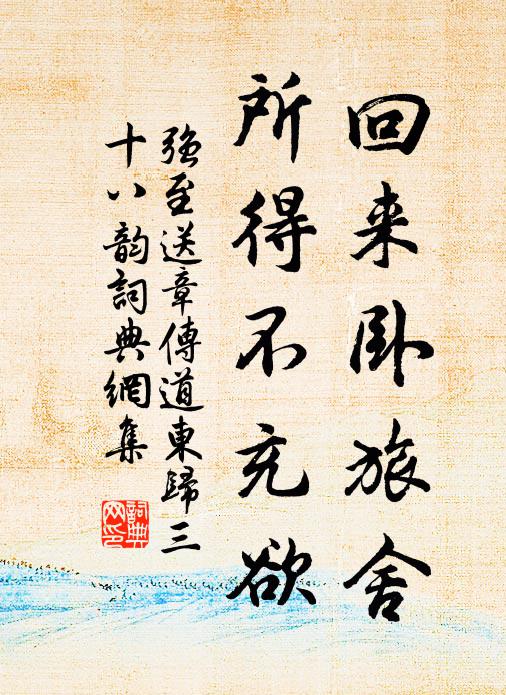 回来卧旅舍
所得不充欲
强至送章傳道東歸三
十八韵詞典網集
詞典
网印